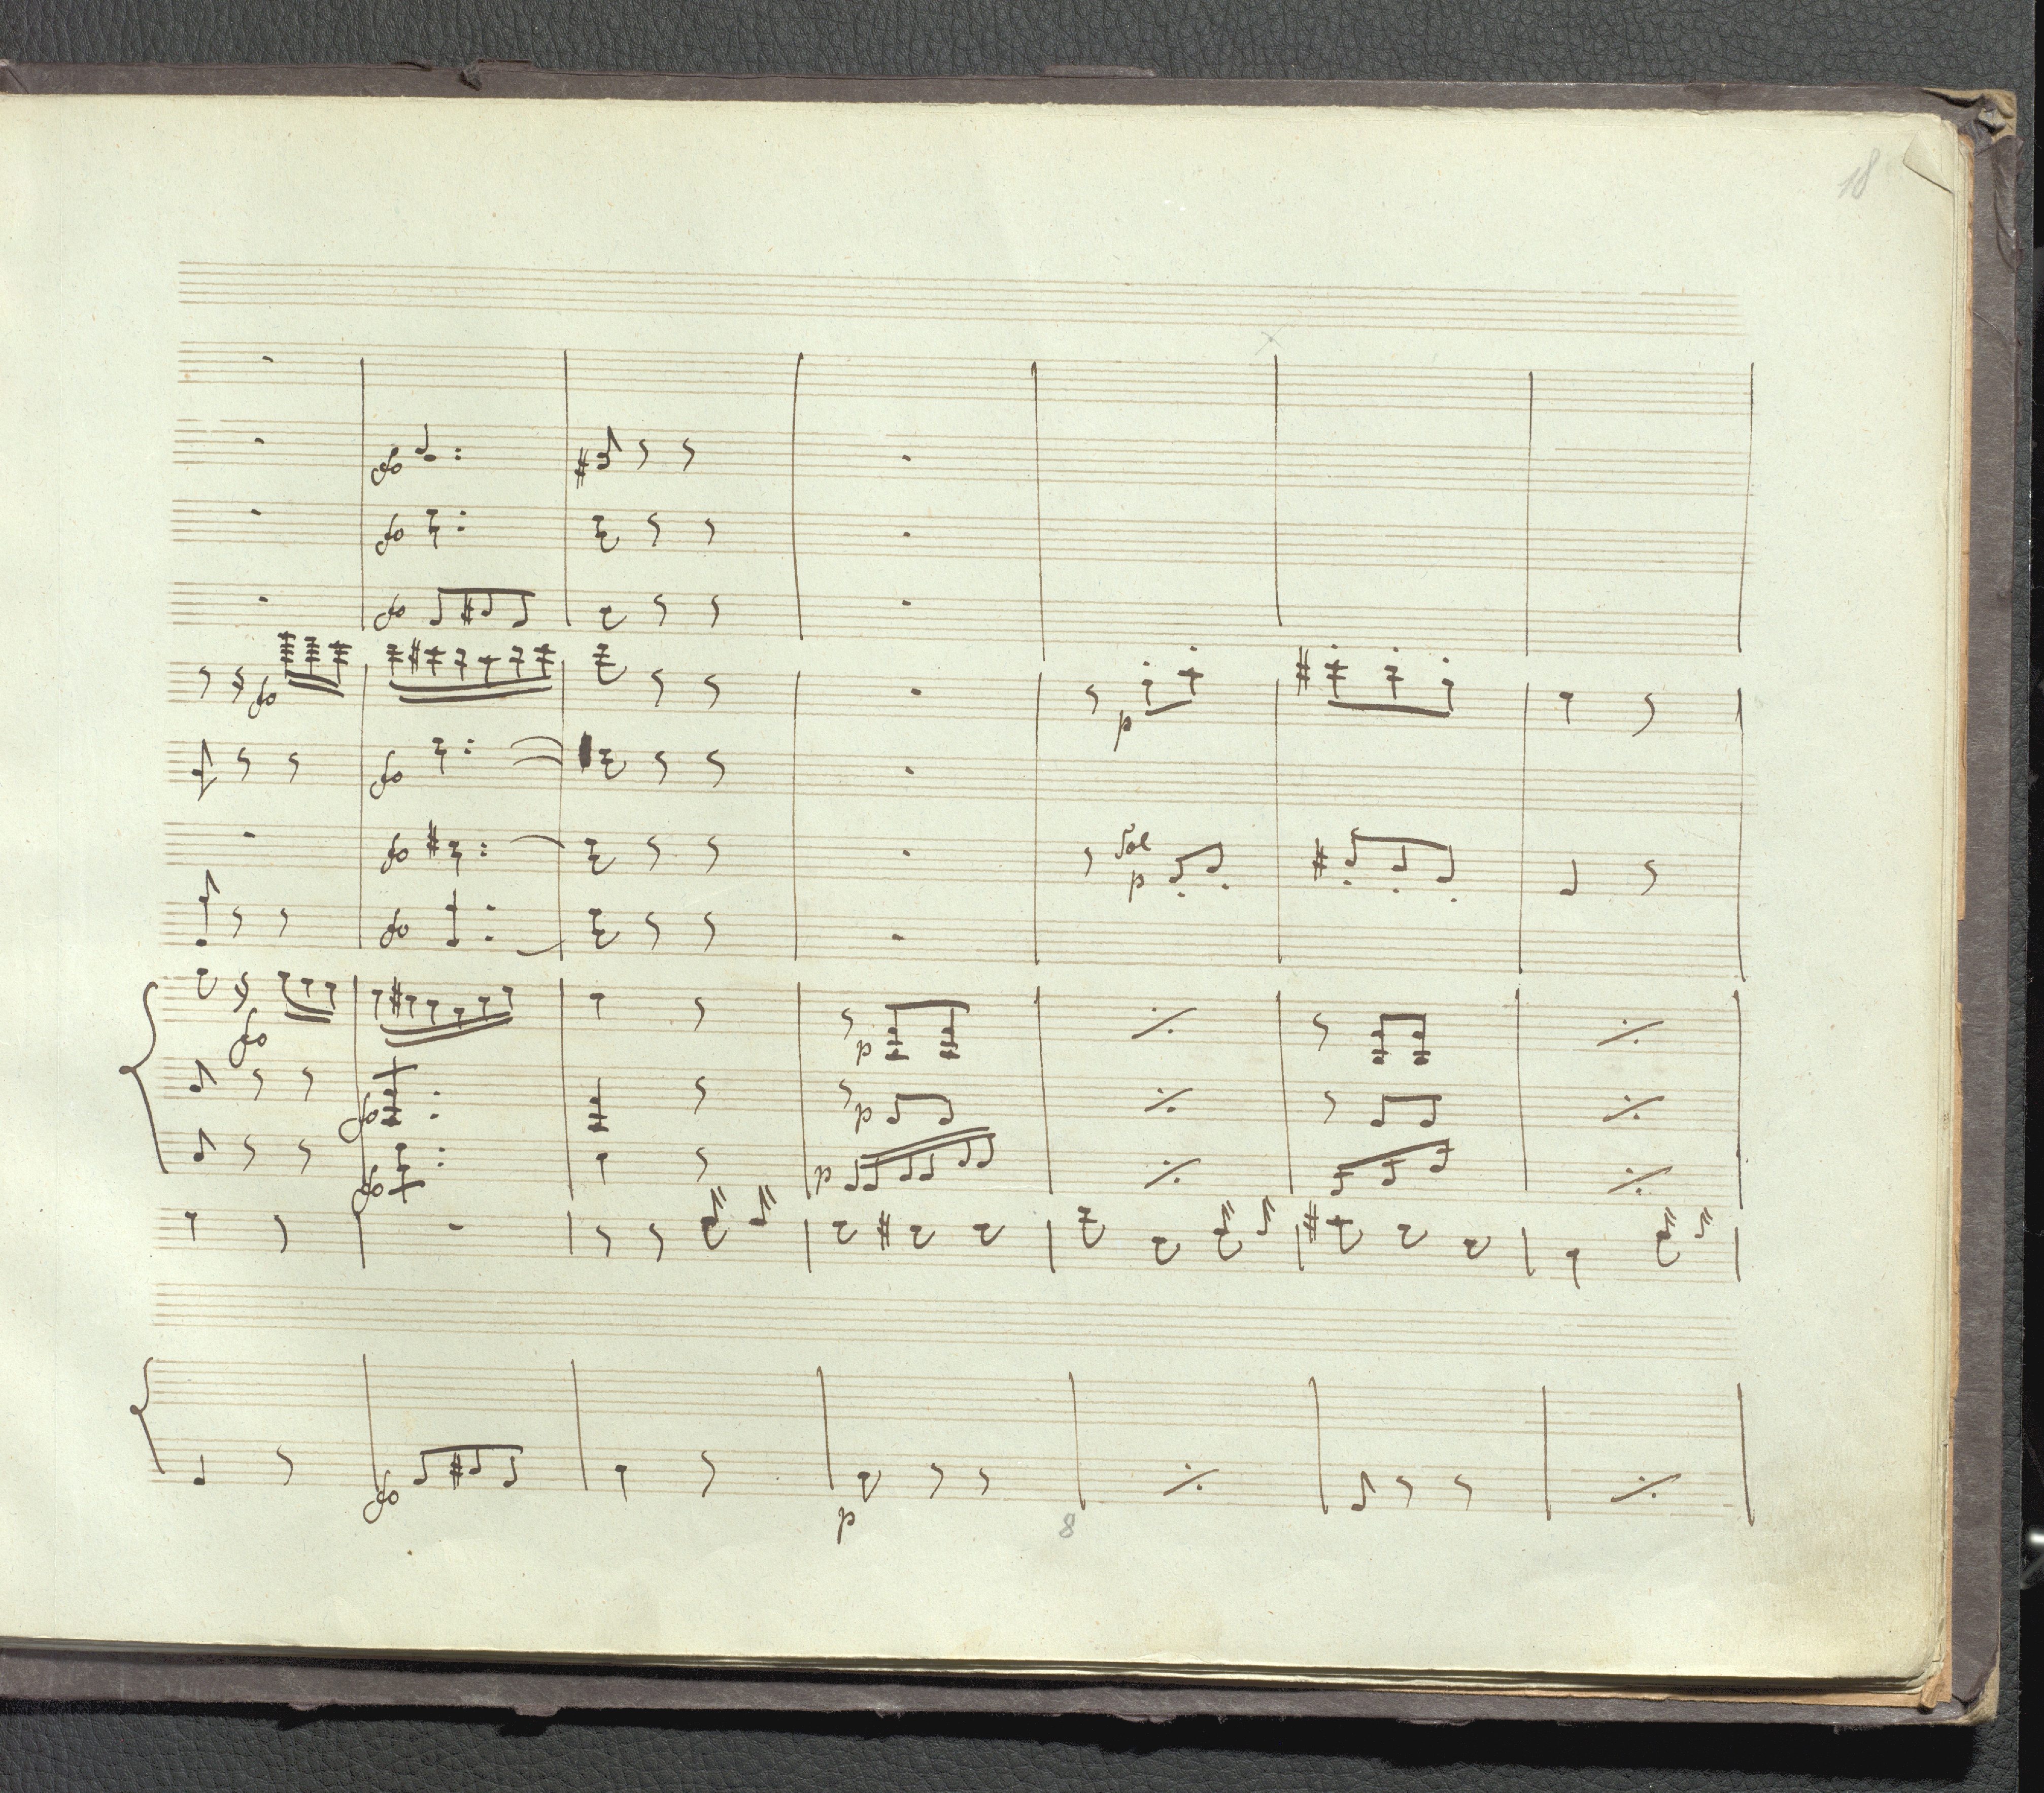 18
fo
fo
fo
fo
p
fo
fo
Sol
p
fo
fo
p
fo
p
fo
p
fo
p
8